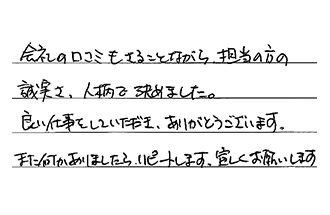 会社の口コミもさることながら、担当の方の
誠実さ、人柄で決めました。
良い仕事をしていただき、ありがとうございます。
また何かありましたら、リピートします、宜しくお願いします